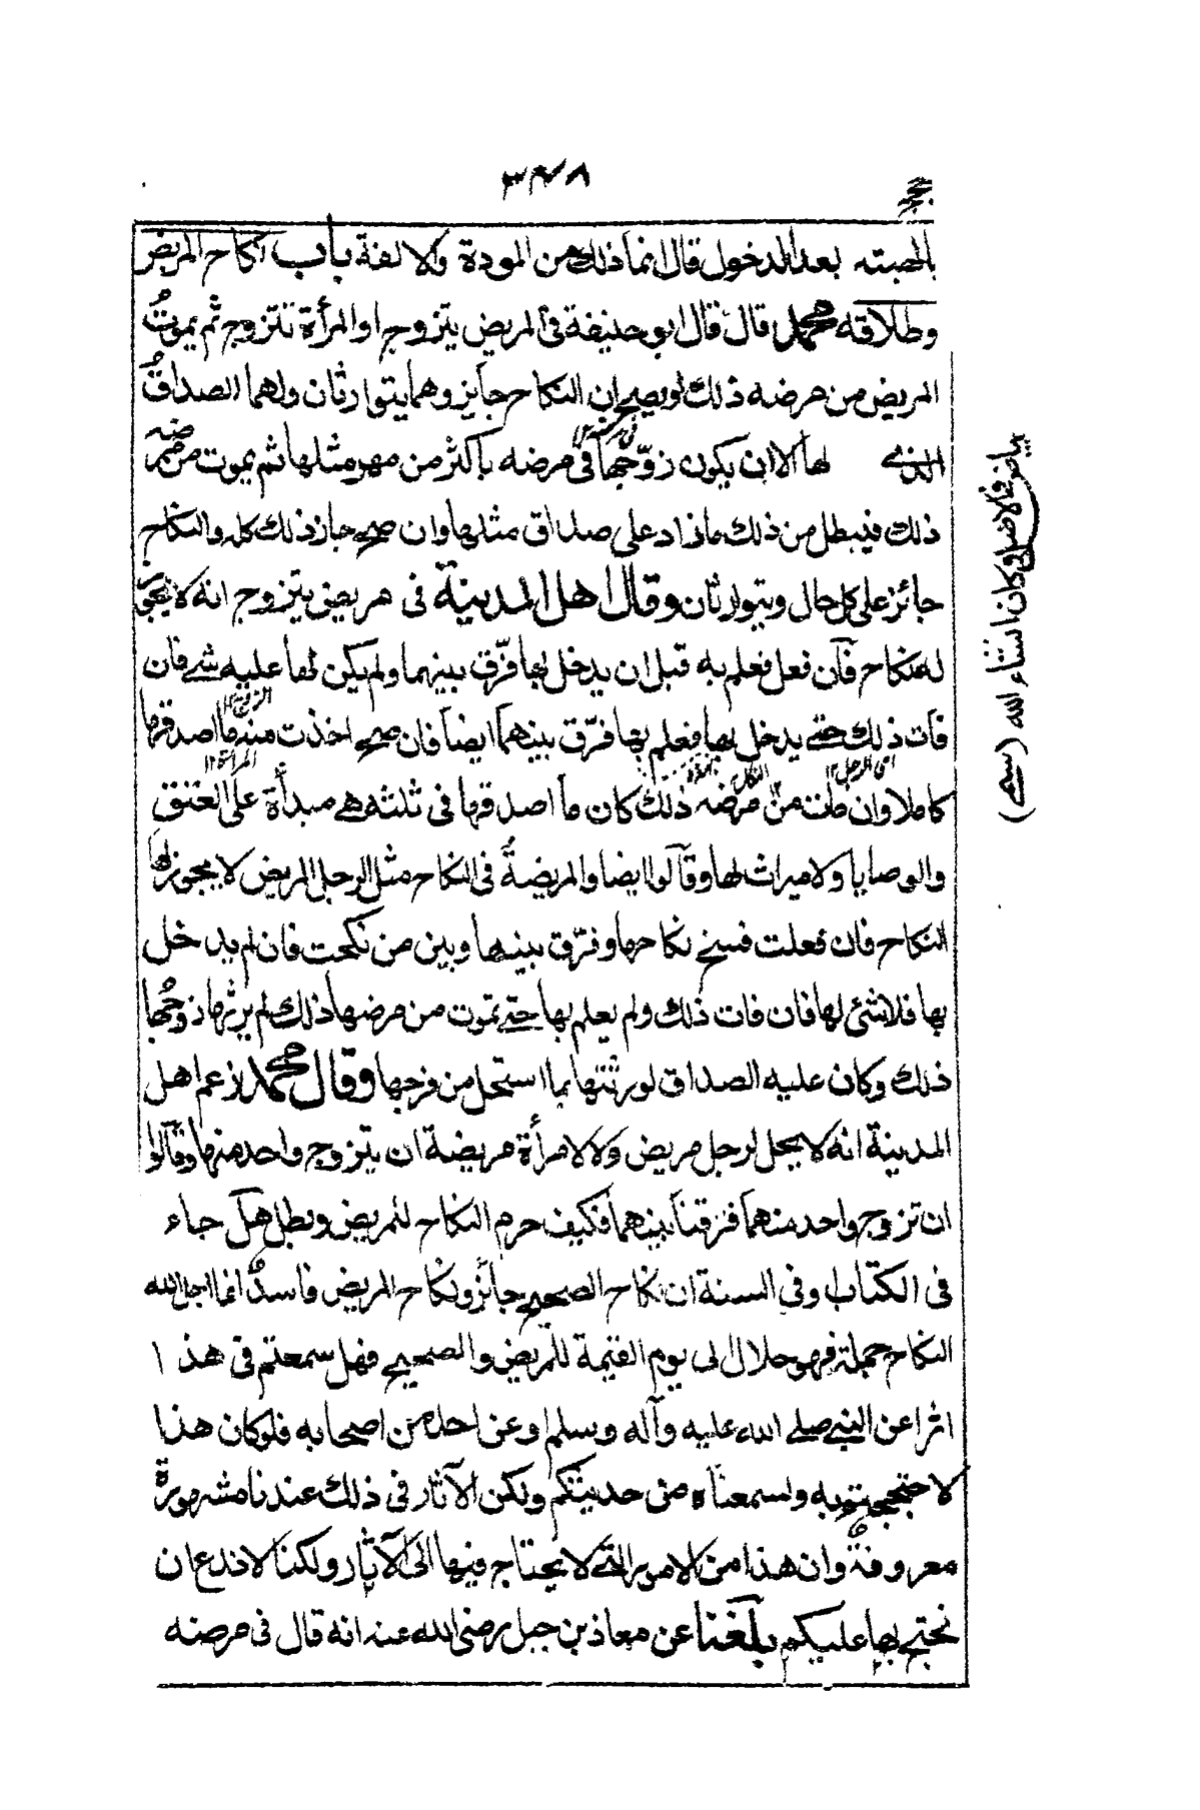 ٣٤٨
بالمحبته بعد الدخول قال انما ذلك من المودة والالفة باب نكاح المريض
وطلاقه محمد قال قال ابو حنيفة فى المريض يتزوج او المرأة تتزوج ثم يموت
المريض من مرضه ذلك لو يصح ان النكاح جايز وهما يتوارثان ولهما الصداق
الذے لها الا ان يكون زوّجها فى مرضه باكثر من مهر مثلها ثم يموت من مرضه
ذلك فيبطل من ذلك ما زاد على صداق مثلها وان صح جاز ذلك كله والنكاح
جائز على كل حال ويتوارثان وقال اهل المدينة فى مريض يتزوج انه لا يجوز
له نكاح فان فعل فعلم به قبل ان يدخل بها فرّق بينهما ولم يكن لها عليه شے فان
فات ذلك حتے يدخل بها فعلم بها فرّق بينهما ايضاً فان صح اخذت منه ما اصدقها
كاملا وان مات من مرضه ذلك كان ما اصدقها فى ثلثه هے مبدأة على العتق
والوصايا ولا ميراث لها وقالوا ايضا والمريضة فى النكاح مثل الرجل المريض لا يجوز لها
النكاح فان فعلت فسخ نكاحها وفرّق بينها وبين من نكحت فان لم يدخل
بها فلا شئ لها فان فات ذلك ولم يعلم بها حتے تموت من مرضها ذلك لم يرثها زوجها
ذلك وكان عليه الصداق لورثتها بما استحل من فرجها وقال محمد زعم اهل
المدينة انه لا يحل لرجل مريض ولا لامرأة مريضة ان يتزوج واحد منهما وقالوا
ان تزوج واحد منهما فرقنا بينهما فكيف حرم النكاح للمريض وبطل هل جاء
فى الكتاب وفى السنة ان نكاح الصحيح جائز ونكاح المريض فاسد انما احل الله
النكاح جملة فهو حلال الى يوم القيمة للمريض والصحيح فهل سمعتم فى هذا
اثرا عن النبے صلے الله عليه وآله وسلم او عن احد من اصحابه فلو كان هذا
لاحتججتم به ولسمعناه من حديثكم ولكن الآثار فى ذلك عندنا مشهورة
معروفة وان هذا من الامور التے لا يحتاج فيها الى الآثار ولكنا لا ندع ان
نحتج بها عليكم بلغنا عن معاذ بن جبل رضى الله عنه انه قال فى مرضه
بياض فى الاصل وكان انشاء الله (سمے)